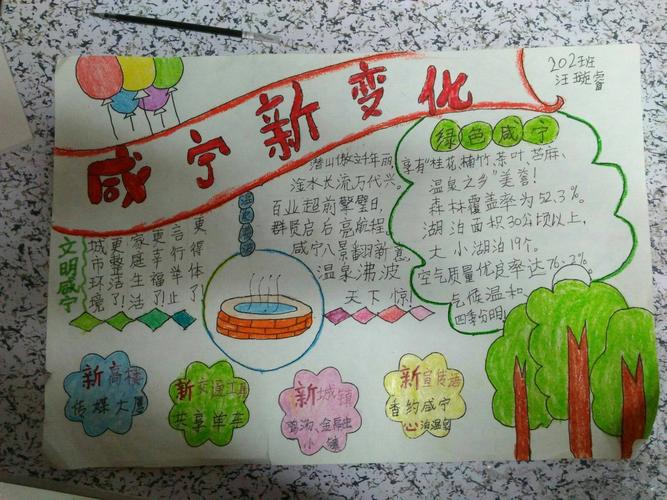 202班
汪璇睿
咸宁新变化
绿色咸宁
享有"桂花、楠竹、茶叶、苎麻、
温泉之乡"美誉!
森林覆盖率为52.3%。
湖泊面积30公顷以上,
大小湖泊19个。
空气质量优良率达76.2%
气候温和
四季分明
潜山傲立千年丽,
淦水长流万代兴。
百业超前擎壁日,
群贤启后亮航程。
咸宁八景翻新意,
温泉沸波
天下惊!
文明咸宁
城市环境
更整洁了!
家庭生活
更幸福了!
言行举止
更得体了!
新高楼
传媒大厦
新交通工具
共享单车
新城镇
小镇
新宣传语
香约咸宁